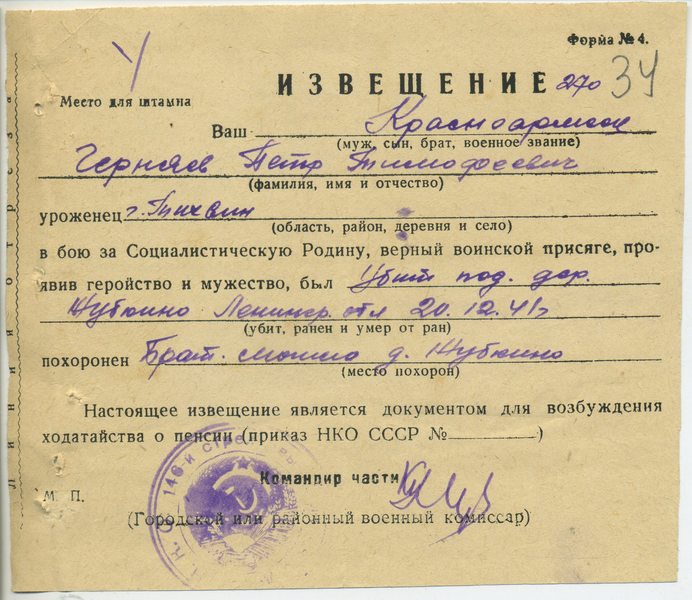 Форма № 4.
ИЗВЕЩЕНИЕ 270 34
Место для штампа
Ваш Красноармеец
(муж, сын, брат, военное звание)
Черняев Петр Тимофеевич
(фамилия, имя и отчество)
уроженец г. Тихвин
(область, район, деревня и село)
в бою за Социалистическую Родину, верный воинской присяге, про-
явив геройство и мужество, был Убит под. дер.
Жубкино Ленингр. обл 20.12.41г
(убит, ранен и умер от ран)
похоронен Брат. могила д. Жубкино
(место похорон)
Настоящее извещение является документом для возбуждения
ходатайства о пенсии (приказ НКО СССР № )
Командир части
М П.
(Городской или районный военный комиссар)
Н. К. О. 146-й
Линия отреза